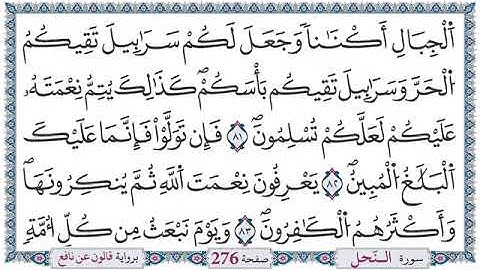 اَ۬لْجِبَالِ أَكْنَٰناٗ وَجَعَلَ لَكُمْ سَرَٰبِيلَ تَقِيكُمُ
اُ۬لْحَرَّ وَسَرَٰبِيلَ تَقِيكُم بَأْسَكُمْۖ كَذَٰلِكَ يُتِمُّ نِعْمَتَهُۥ
عَلَيْكُمْ لَعَلَّكُمْ تُسْلِمُونَۖ ٨١ فَإِن تَوَلَّوْاْ فَإِنَّمَا عَلَيْكَ
اَ۬لْبَلَٰغُ اُ۬لْمُبِينُۖ ٨٢ يَعْرِفُونَ نِعْمَتَ اَ۬للَّهِ ثُمَّ يُنكِرُونَهَاۖ
وَأَكْثَرُهُمُ اُ۬لْكَٰفِرُونَۖ ٨٣ وَيَوْمَ نَبْعَثُ مِن كُلِّ أُمَّةٖ
سورة النحل صفحة 276 برواية قالون عن نافع